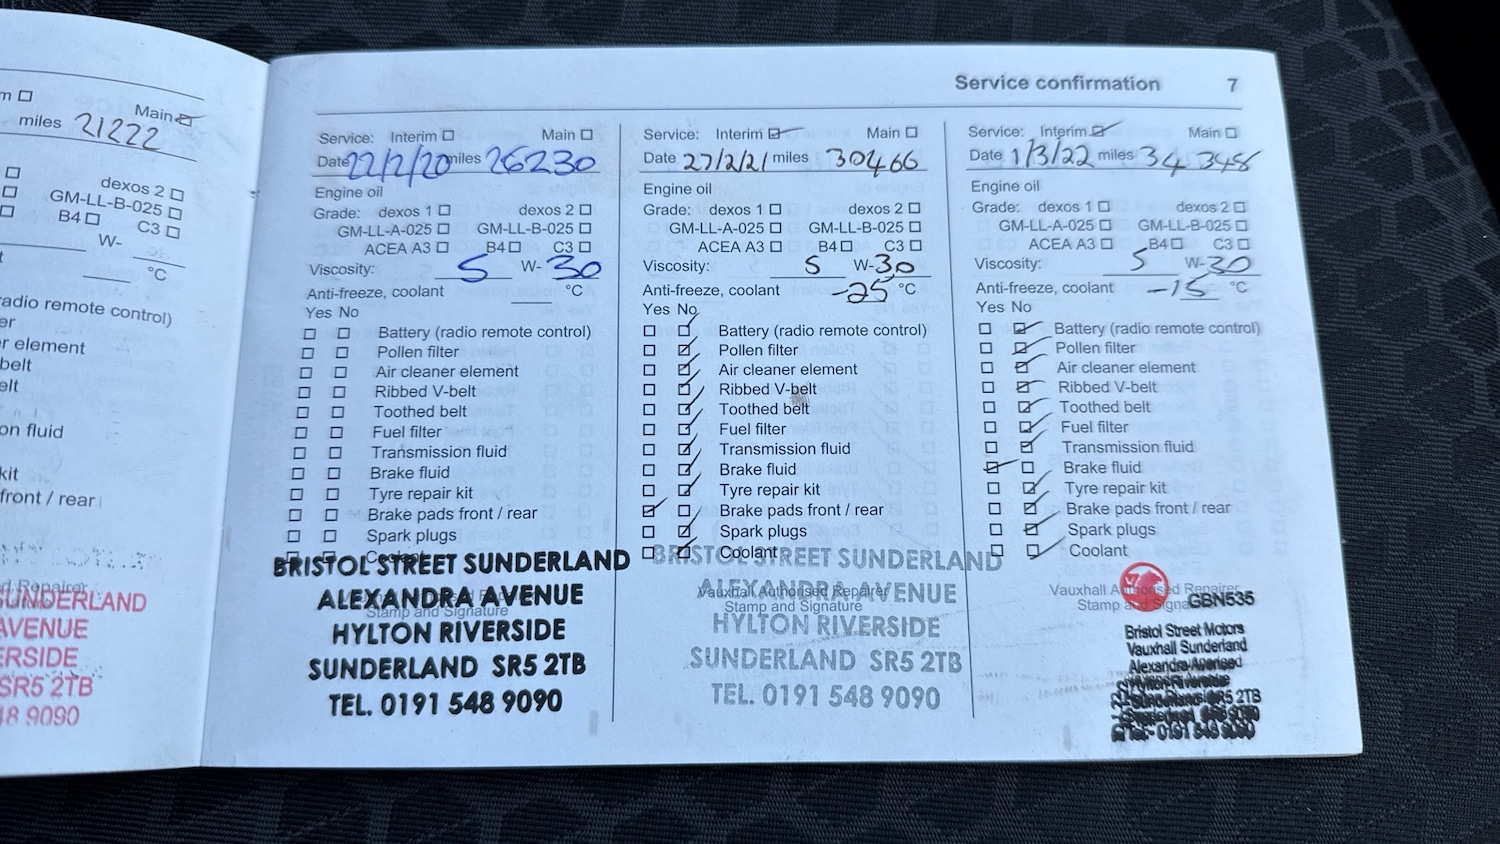 Main
miles 21222
dexos 2
GM-LL-B-025
B4 C3
W-
°C
radio remote control)
er
r element
belt
elt
on fluid
kit
front / rear
d Repairer
SUNDERLAND
AVENUE
ERSIDE
SR5 2TB
48 9090
Service confirmation 7
Service: Interim Main
Date 22/2/20 miles 26230
Engine oil
Grade: dexos 1 dexos 2
GM-LL-A-025 GM-LL-B-025
ACEA A3 B4 C3
Viscosity: 5 W- 30
Anti-freeze, coolant °C
Yes No
Battery (radio remote control)
Pollen filter
Air cleaner element
Ribbed V-belt
Toothed belt
Fuel filter
Transmission fluid
Brake fluid
Tyre repair kit
Brake pads front / rear
Spark plugs
Coolant
Stamp and Signature
BRISTOL STREET SUNDERLAND
ALEXANDRA AVENUE
HYLTON RIVERSIDE
SUNDERLAND SR5 2TB
TEL. 0191 548 9090
Service: Interim Main
Date 27/2/21 miles 30466
Engine oil
Grade: dexos 1 dexos 2
GM-LL-A-025 GM-LL-B-025
ACEA A3 B4 C3
Viscosity: 5 W-30
Anti-freeze, coolant -25 °C
Yes No
Battery (radio remote control)
Pollen filter
Air cleaner element
Ribbed V-belt
Toothed belt
Fuel filter
Transmission fluid
Brake fluid
Tyre repair kit
Brake pads front / rear
Spark plugs
Coolant
Vauxhall Authorised Repairer
Stamp and Signature
BRISTOL STREET SUNDERLAND
ALEXANDRA AVENUE
HYLTON RIVERSIDE
SUNDERLAND SR5 2TB
TEL. 0191 548 9090
Service: Interim Main
Date 1/3/22 miles
Engine oil
Grade: dexos 1 dexos 2
GM-LL-A-025 GM-LL-B-025
ACEA A3 B4 C3
Viscosity: 5 W-30
Anti-freeze, coolant -15 °C
Yes No
Battery (radio remote control)
Pollen filter
Air cleaner element
Ribbed V-belt
Toothed belt
Fuel filter
Transmission fluid
Brake fluid
Tyre repair kit
Brake pads front / rear
Spark plugs
Coolant
Vauxhall Authorised Repairer
Stamp and
GBN535
Bristol Street Motors
Vauxhall Sunderland